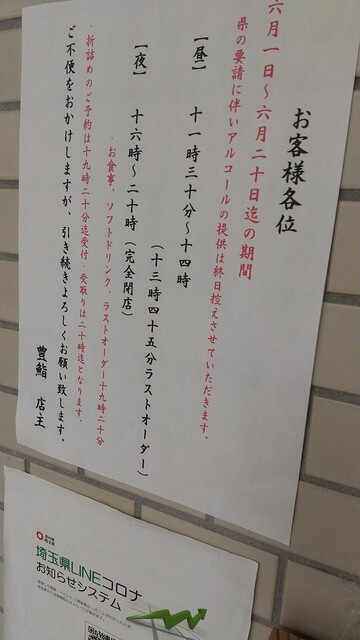 お客様各位
六月一日～六月二十日迄の期間
県の要請に伴いアルコールの提供は終日控えさせていただきます。
【昼】 十一時三十分～十四時
(十三時四十五分ラストオーダー)
【夜】 十六時～二十時(完全閉店)
・お食事、ソフトドリンク、ラストオーダー十九時二十分
・折詰めのご予約は十九時二十分迄受付・受取りは二十時迄となります。
ご不便をおかけしますが、引き続きよろしくお願い致します。
豊鮨 店主
埼玉県LINEコロナ
お知らせシステム